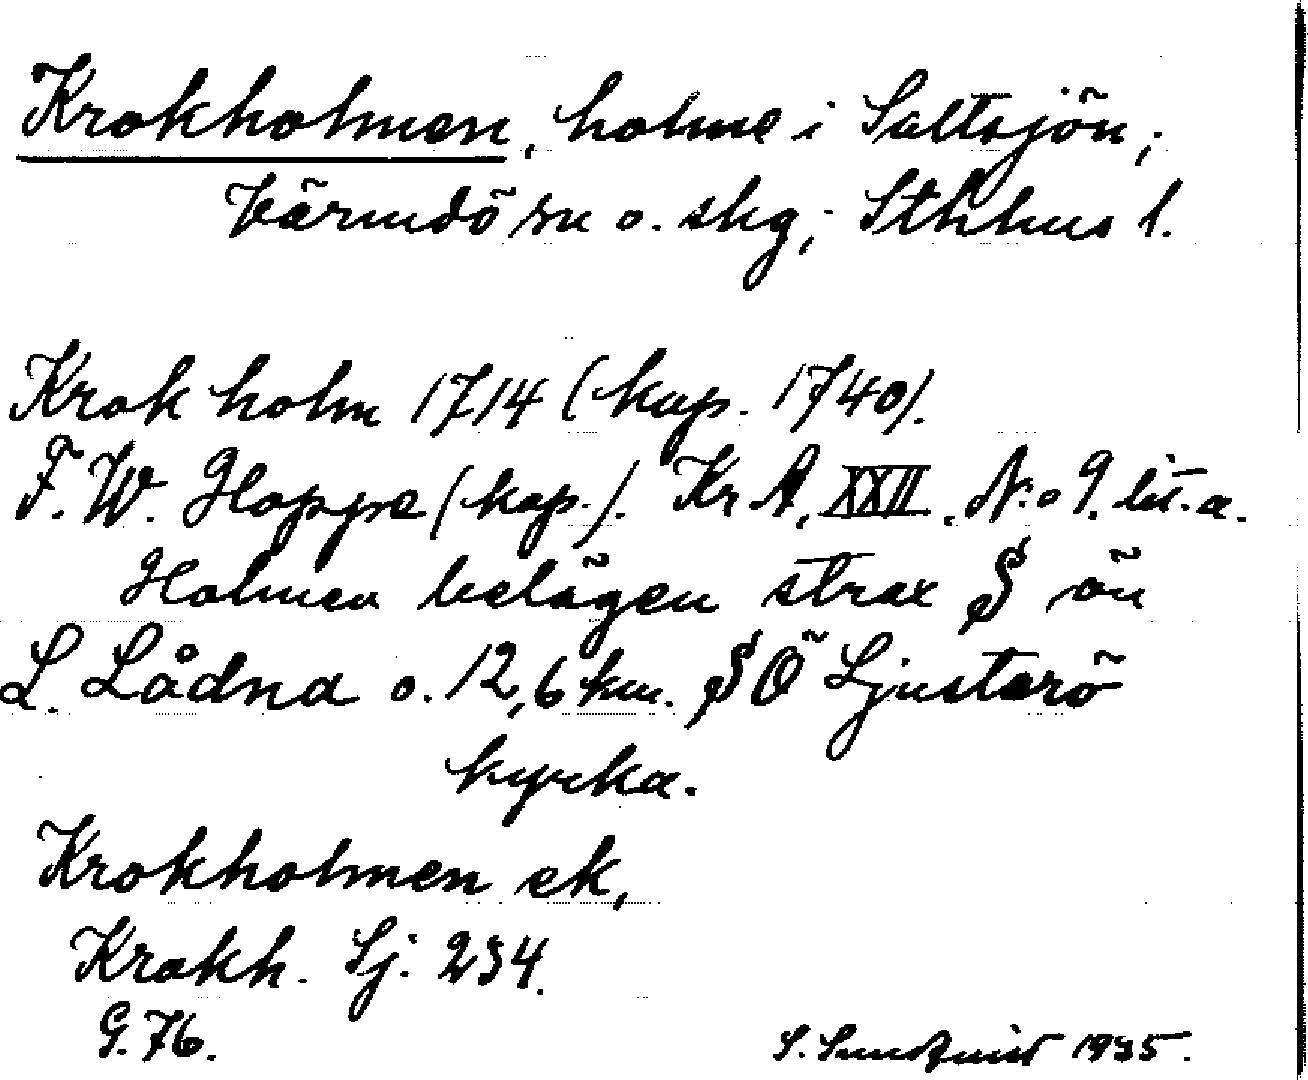 Krokholmen, holme i Saltsjön,
Värmdö sn o. skg, Sthlms l.
Krokholm 1714 (kop. 1740).
F. W. Hoppe (kop.). Kr A. XXII. N:o 9. lit. a.
Holmen belägen strax S ön
L. Lådna o. 12,6 km. SÖ Ljusterö
kyrka.
Krokholmen ek,
Krokh. Sj. 234.
G. 76.
S. Sundqvist 1935.